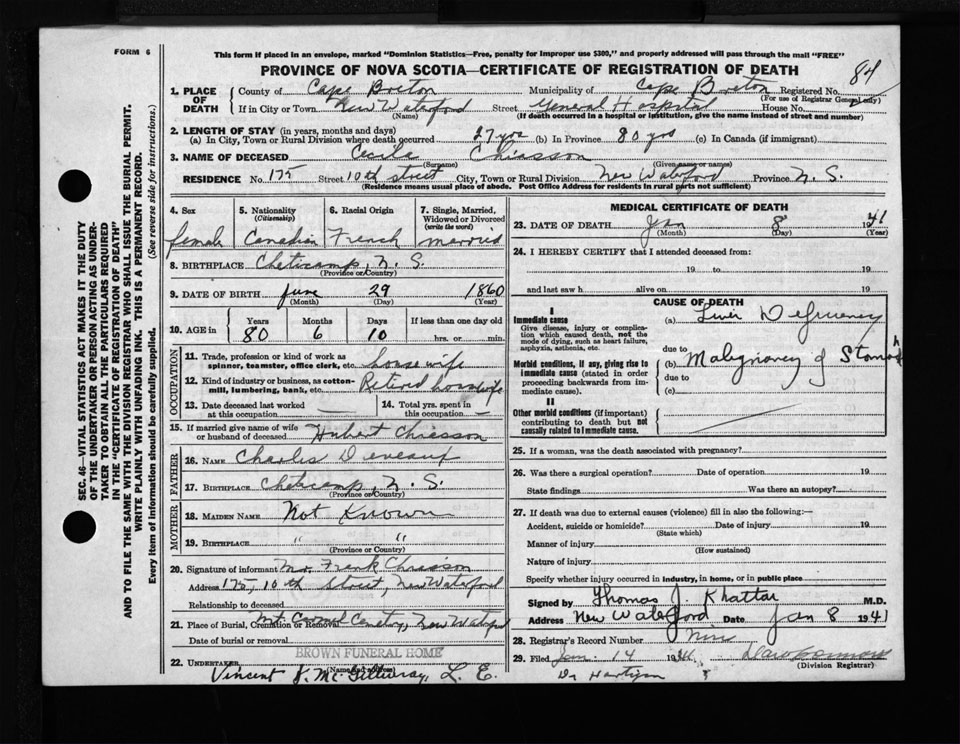 FORM 6
This form if placed in an envelope, marked "Dominion Statistics—Free, penalty for improper use $300," and properly addressed will pass through the mail "FREE"
PROVINCE OF NOVA SCOTIA—CERTIFICATE OF REGISTRATION OF DEATH
84
SEC. 46—VITAL STATISTICS ACT MAKES IT THE DUTY
OF THE UNDERTAKER OR PERSON ACTING AS UNDER-
TAKER TO OBTAIN ALL THE PARTICULARS REQUIRED
IN THE "CERTIFICATE OF REGISTRATION OF DEATH"
AND TO FILE THE SAME WITH THE DIVISION REGISTRAR WHO SHALL ISSUE THE BURIAL PERMIT.
WRITE PLAINLY WITH UNFADING INK. THIS IS A PERMANENT RECORD.
Every item of information should be carefully supplied. (See reverse side for instructions.)
1. PLACE OF DEATH
County of Cape Breton Municipality of Cape Breton Registered No.
(For use of Registrar General only)
If in City or Town New Waterford Street General Hospital House No.
(Name) (If death occurred in a hospital or institution, give the name instead of street and number)
2. LENGTH OF STAY (in years, months and days)
(a) In City, Town or Rural Division where death occurred 27 yrs (b) In Province 80 yrs (c) In Canada (if immigrant)
3. NAME OF DECEASED Cecile Chiasson
(Surname) (Given name or names)
RESIDENCE No. 175 Street 10th street City, Town or Rural Division New Waterford Province N. S.
(Residence means usual place of abode. Post Office Address for residents in rural parts not sufficient)
4. Sex
female
5. Nationality
(Citizenship)
Canadian
6. Racial Origin
French
7. Single, Married, Widowed or Divorced
(write the word)
married
8. BIRTHPLACE Cheticamp, N. S.
(Province or Country)
9. DATE OF BIRTH June 29 1860
(Month) (Day) (Year)
10. AGE in Years Months Days If less than one day old
80 6 10 hrs. or min.
OCCUPATION
11. Trade, profession or kind of work as
spinner, teamster, office clerk, etc. housewife
12. Kind of industry or business, as cotton-
mill, lumbering, bank, etc. Retired housewife
13. Date deceased last worked
at this occupation —
14. Total yrs. spent in
this occupation —
15. If married give name of wife
or husband of deceased Hubert Chiasson
FATHER
16. NAME Charles Deveaux
17. BIRTHPLACE Cheticamp, N. S.
(Province or Country)
MOTHER
18. MAIDEN NAME Not Known
19. BIRTHPLACE " "
(Province or Country)
20. Signature of informant Mr. Frank Chiasson
Address 175, 10th Street, New Waterford
Relationship to deceased
21. Place of Burial, Cremation or Removal Mt. Carmel Cemetery, New Waterford
Date of burial or removal
BROWN FUNERAL HOME
22. UNDERTAKER
(Name and address)
Vincent J. McGillivray, L. E.
MEDICAL CERTIFICATE OF DEATH
23. DATE OF DEATH Jan 8 1941
(Month) (Day) (Year)
24. I HEREBY CERTIFY that I attended deceased from:
19 to 19
and last saw h alive on 19
CAUSE OF DEATH
I
Immediate cause
Give disease, injury or complica-
tion which caused death, not the
mode of dying, such as heart failure,
asphyxia, asthenia, etc.
(a) Liver Deficiency
due to
Morbid conditions, if any, giving rise to
immediate cause (stated in order
proceeding backwards from im-
mediate cause).
(b) Malignancy of Stomach
due to
(c)
II
Other morbid conditions (if important)
contributing to death but not
causally related to immediate cause.
25. If a woman, was the death associated with pregnancy?
26. Was there a surgical operation? Date of operation 19
State findings Was there an autopsy?
27. If death was due to external causes (violence) fill in also the following:—
Accident, suicide or homicide? Date of injury 19
(State which)
Manner of injury
(How sustained)
Nature of injury
Specify whether injury occurred in industry, in home, or in public place
Signed by Thomas J. Khattar M.D.
Address New Waterford Date Jan 8 1941
28. Registrar's Record Number
29. Filed Jan. 14 1941
(Division Registrar)